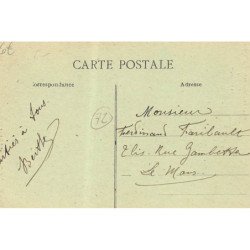 CARTE POSTALE
Correspondance
Adresse
à tous
Berthe
72
Monsieur
Ferdinand Faribault
bis Rue Gambetta
Le Mans